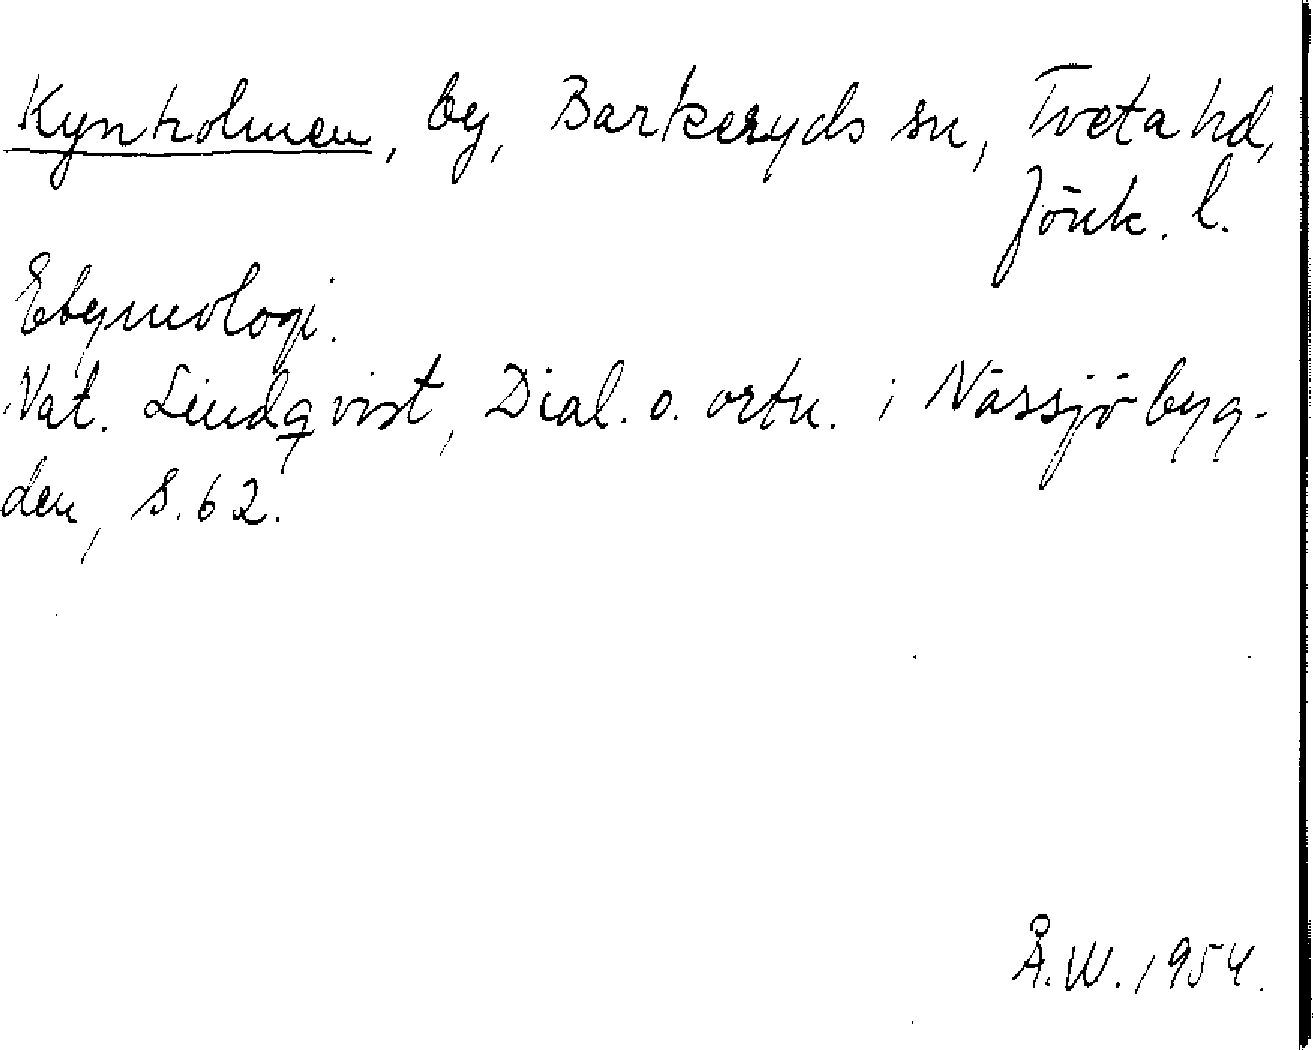 Kynholmen, by, Barkeryds sn, Tveta hd,
Jönk. l.
Etymologi.
Nat. Lindqvist, Dial. o. ortn. i Nässjöbyg-
den, s. 62.
Å.W. 1954.